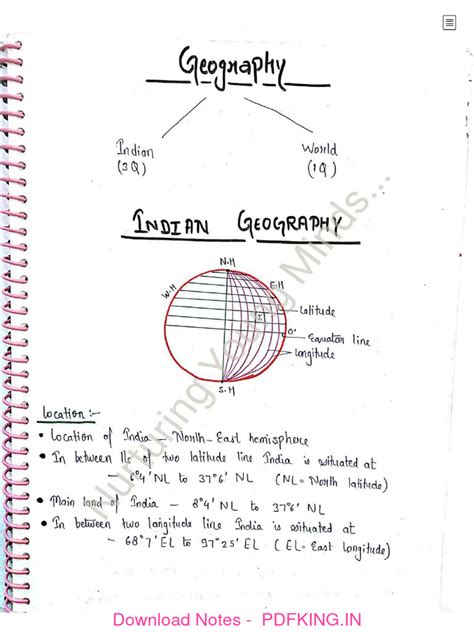 Geography
Indian
(3Q)
World
(1Q)
INDIAN GEOGRAPHY
N.H
W.H
E.H
Latitude
I
0°
Equator line
Longitude
S.H
Location :-
• Location of India – North-East hemisphere
• In between lls of two latitude line India is situated at
6°4' NL to 37°6' NL (NL = North latitude)
• Main land of India – 8°4' NL to 37°6' NL
• In between two longitude line India is situated at
– 68°7' EL to 97°25' EL (EL = East Longitude)
Nurturing Young Minds...
Download Notes - PDFKING.IN